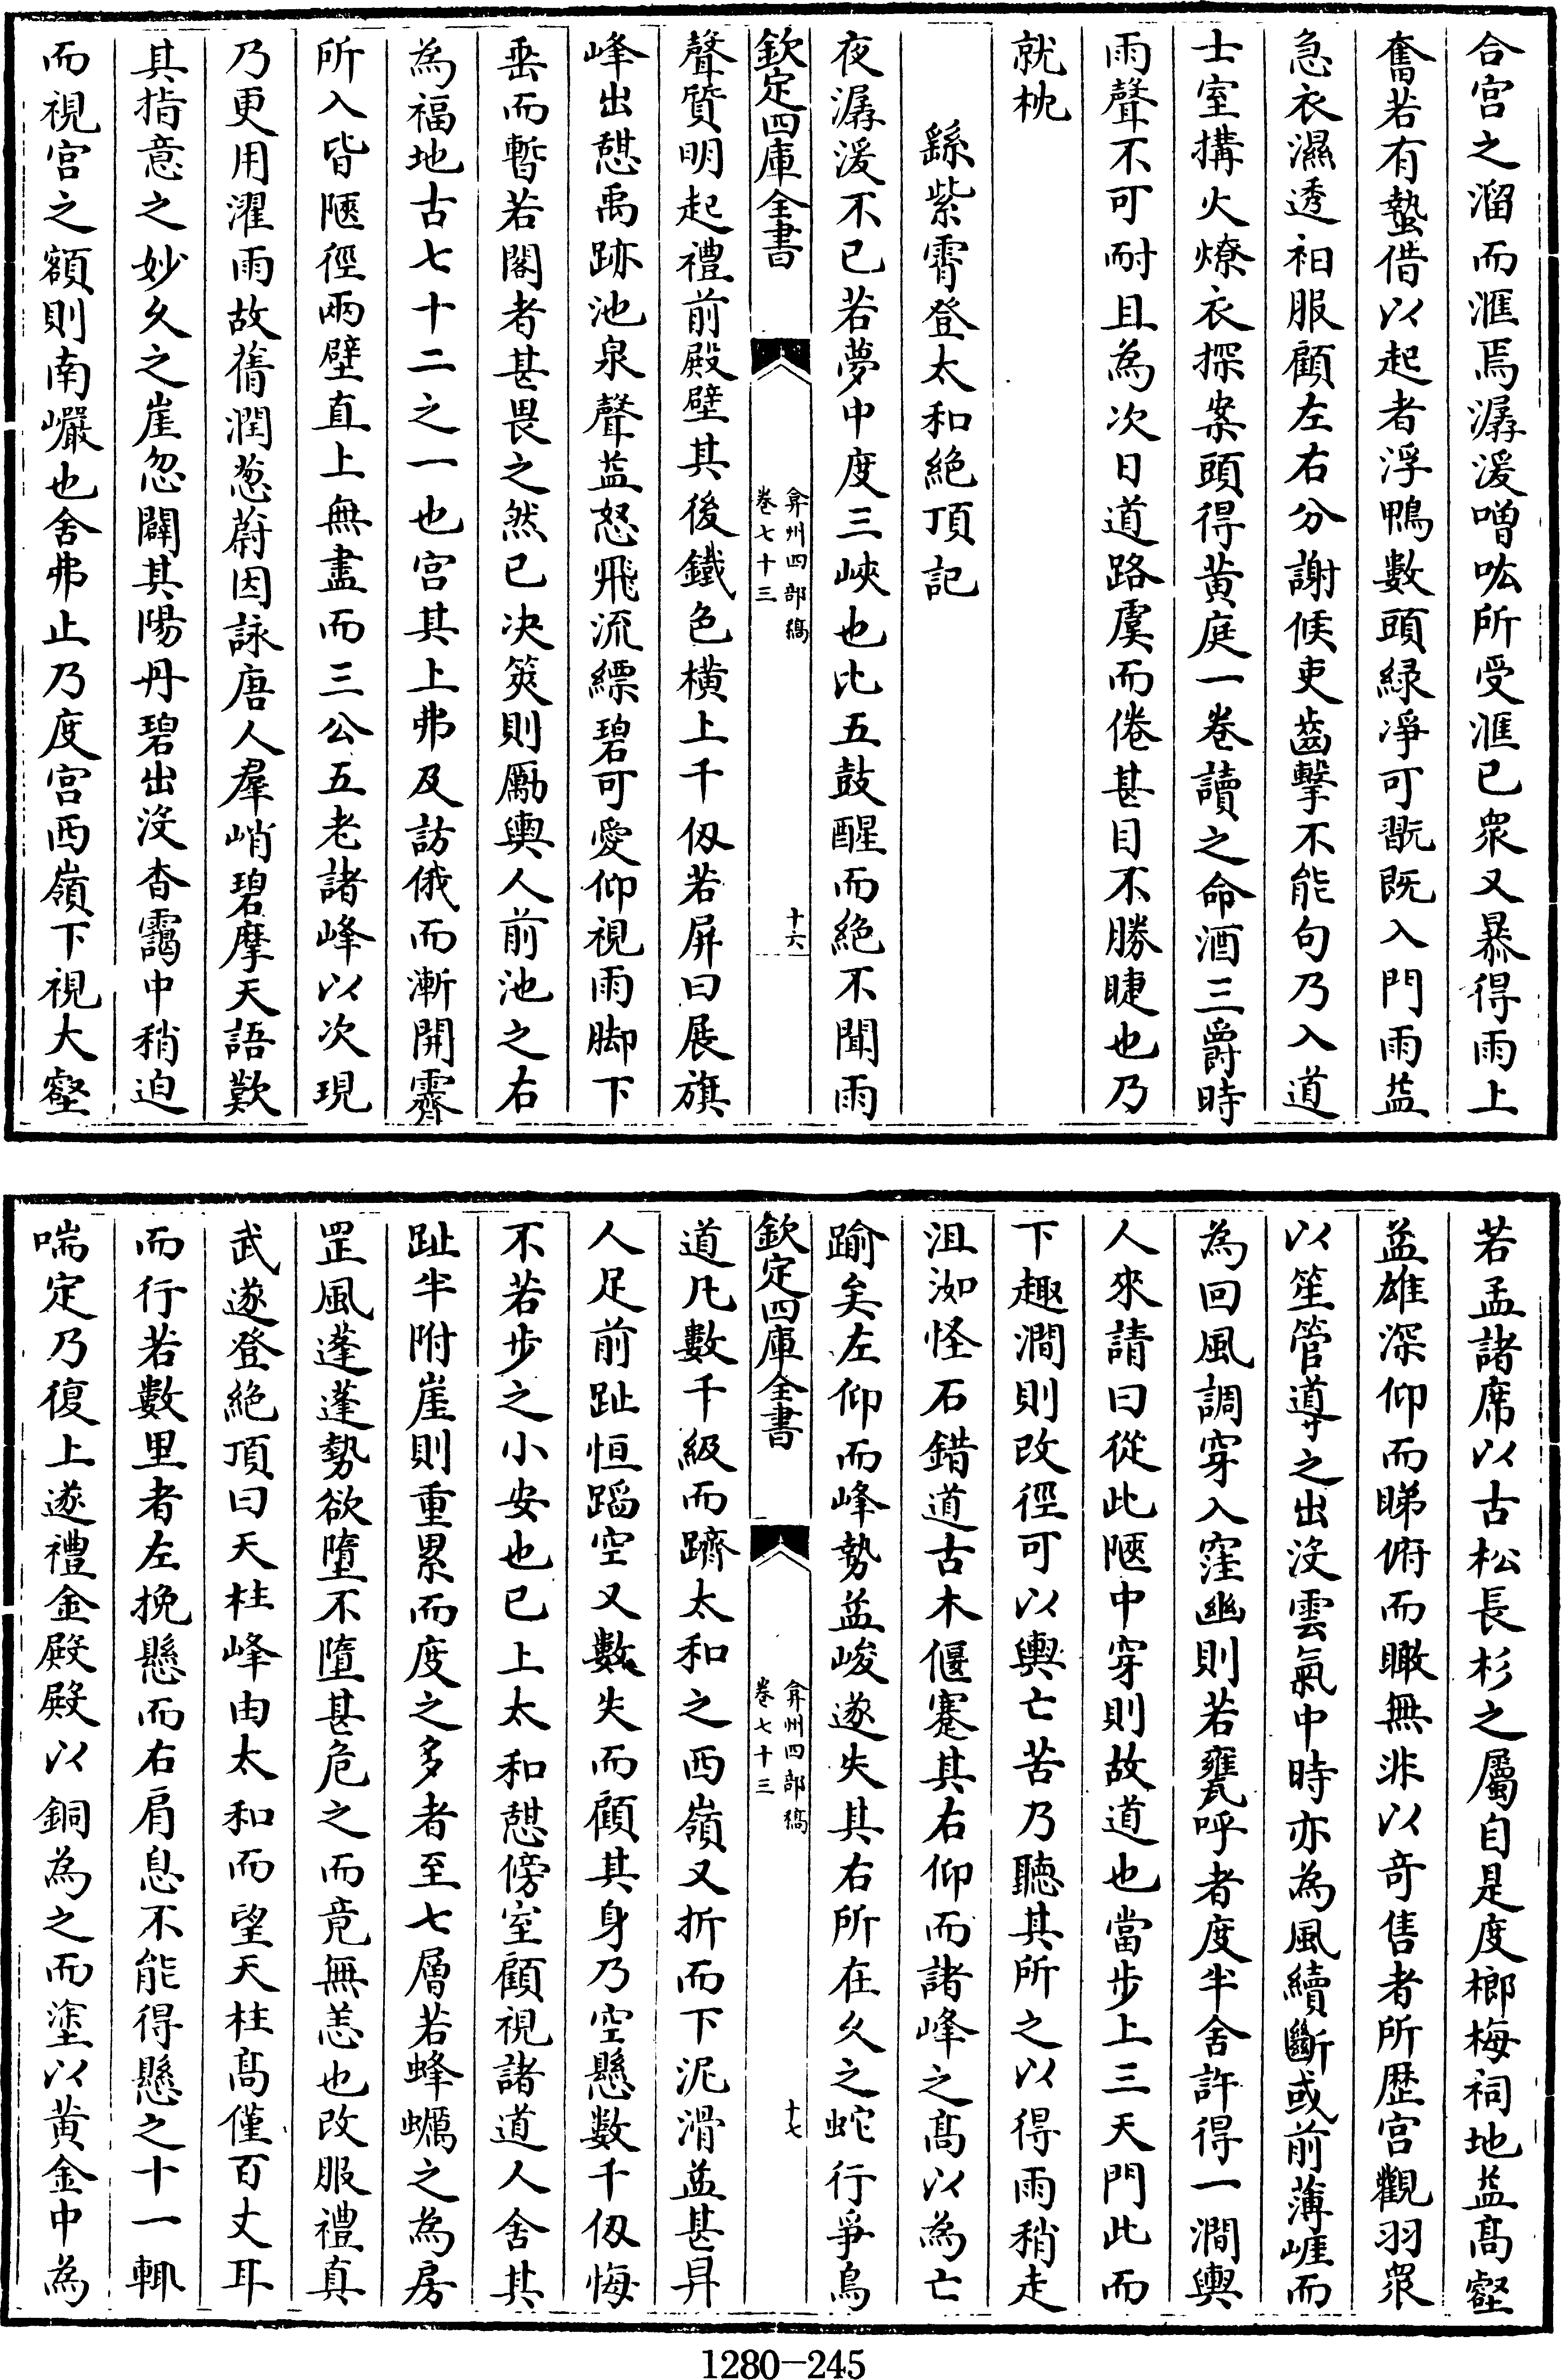 合宫之溜而滙焉潺湲噌吰所受滙已衆又暴得雨上
奮若有蟄借以起者浮鴨數頭緑凈可翫既入門雨益
急衣濕透衵服顧左右分謝候吏齒擊不能句乃入道
士室搆火燎衣探案頭得黄庭一卷讀之命酒三爵時
雨聲不可耐且為次日道路虞而倦甚目不勝睫也乃
就枕
繇紫霄登太和絶頂記
夜潺湲不已若夢中度三峽也比五鼓醒而絶不聞雨
欽定四庫全書
弇州四部稿
卷七十三
十六
聲質明起禮前殿壁其後鐵色横上千仭若屏曰展旗
峰出憇禹跡池泉聲益怒飛流縹碧可愛仰視雨脚下
垂而暫若閣者甚畏之然已决筴則勵輿人前池之右
為福地古七十二之一也宫其上弗及訪俄而漸開霽
所入皆陿徑兩壁直上無盡而三公五老諸峰以次現
乃更用濯雨故蒨潤葱蔚因詠唐人羣峭碧摩天語歎
其指意之妙久之崖忽闢其陽丹碧出没杳靄中稍迫
而視宫之額則南巖也舍弗止乃度宫西嶺下視大壑
若孟諸席以古松長杉之屬自是度榔梅祠地益髙壑
益雄深仰而睇俯而瞰無非以竒售者所歴宫觀羽衆
以笙管導之出没雲氣中時亦為風續斷或前薄崕而
為回風調穿入窪幽則若甕呼者度半舍許得一澗輿
人來請曰從此陿中穿則故道也當步上三天門此而
下趣澗則改徑可以輿亡苦乃聽其所之以得雨稍走
沮洳怪石錯道古木偃蹇其右仰而諸峰之髙以為亡
踰矣左仰而峰勢益峻遂失其右所在久之蛇行爭鳥
欽定四庫全書
弇州四部稿
卷七十三
十七
道凡數千級而躋太和之西嶺又折而下泥滑益甚舁
人足前趾恒蹈空又數失而顧其身乃空懸數千仭悔
不若步之小安也已上太和憇傍室顧視諸道人舍其
趾半附崖則重累而度之多者至七層若蜂蠣之為房
罡風蓬蓬勢欲墮不墮甚危之而竟無恙也改服禮真
武遂登絶頂曰天柱峰由太和而望天柱髙僅百丈耳
而行若數里者左挽懸而右肩息不能得懸之十一輒
喘定乃復上遂禮金殿殿以銅為之而塗以黄金中為
1280-245